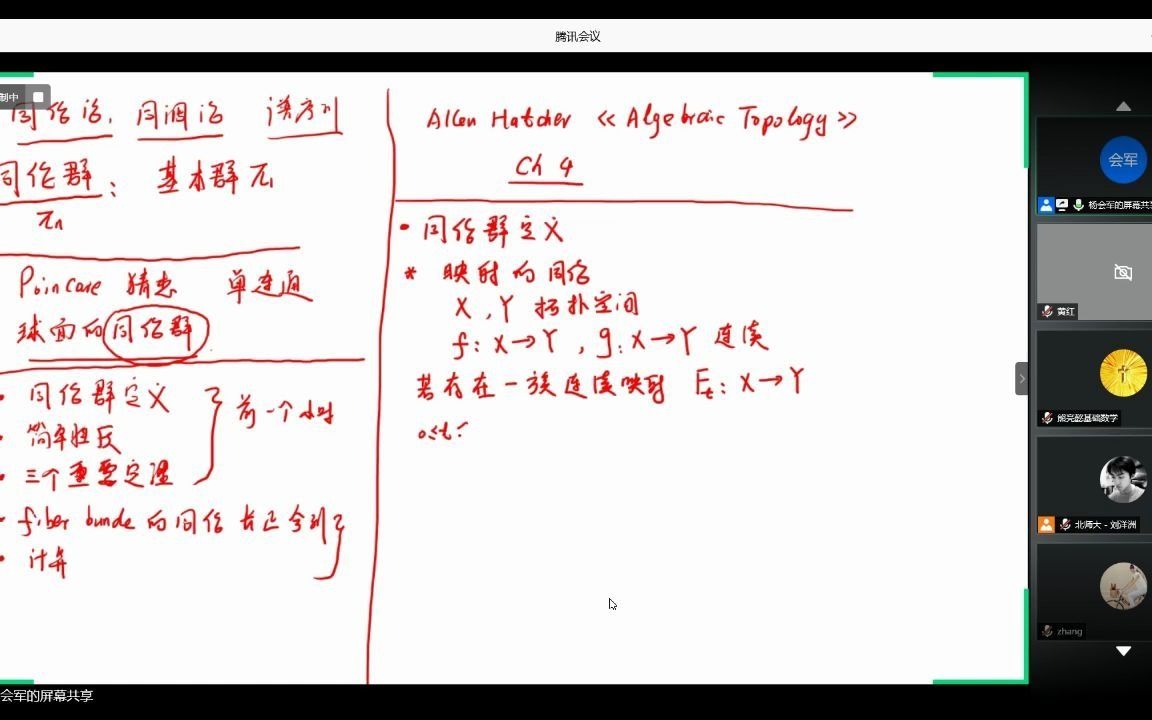 腾讯会议
制中
同伦论, 同调论 谱序列
同伦群: 基本群 π₁
πn
Poincare 猜想 单连通
球面的同伦群
• 同伦群定义
• 简单性质
• 三个重要定理
前一个小时
• fiber bunde 的同伦长正合列
• 计算
Allen Hatcher 《Algebraic Topology》
Ch 4
• 同伦群定义
* 映射的同伦
X, Y 拓扑空间
f: X→Y, g: X→Y 连续
若存在一族连续映射 Ft: X→Y
0≤t
会军
杨会军的屏幕共享
黄红
熊完懿基础数学
北师大 - 刘洋洲
zhang
会军的屏幕共享